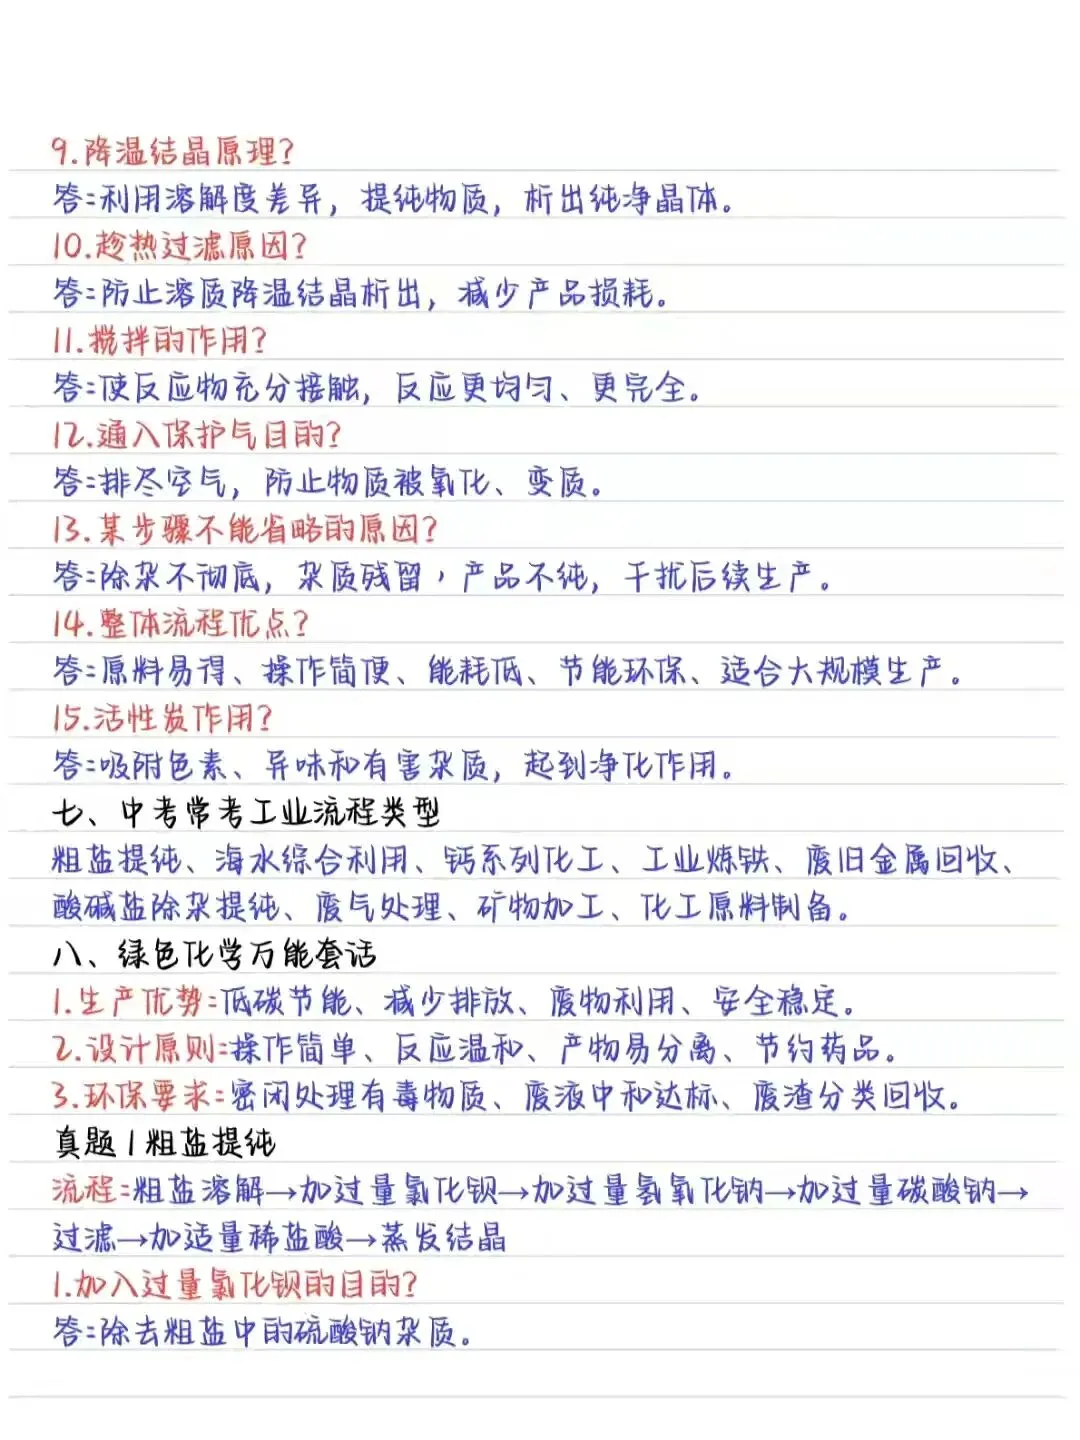 9.降温结晶原理?
答:利用溶解度差异，提纯物质，析出纯净晶体。
10.趁热过滤原因?
答:防止溶质降温结晶析出，减少产品损耗。
11.搅拌的作用?
答:使反应物充分接触，反应更均匀、更完全。
12.通入保护气目的?
答:排尽空气，防止物质被氧化、变质。
13.某步骤不能省略的原因?
答:除杂不彻底，杂质残留，产品不纯，干扰后续生产。
14.整体流程优点?
答:原料易得、操作简便、能耗低、节能环保、适合大规模生产。
15.活性炭作用?
答:吸附色素、异味和有害杂质，起到净化作用。
七、中考常考工业流程类型
粗盐提纯、海水综合利用、钙系列化工、工业炼铁、废旧金属回收、
酸碱盐除杂提纯、废气处理、矿物加工、化工原料制备。
八、绿色化学万能套话
1.生产优势:低碳节能、减少排放、废物利用、安全稳定。
2.设计原则:操作简单、反应温和、产物易分离、节约药品。
3.环保要求:密闭处理有毒物质、废液中和达标、废渣分类回收。
真题1粗盐提纯
流程:粗盐溶解→加过量氯化钡→加过量氢氧化钠→加过量碳酸钠→
过滤→加适量稀盐酸→蒸发结晶
1.加入过量氯化钡的目的?
答:除去粗盐中的硫酸钠杂质。